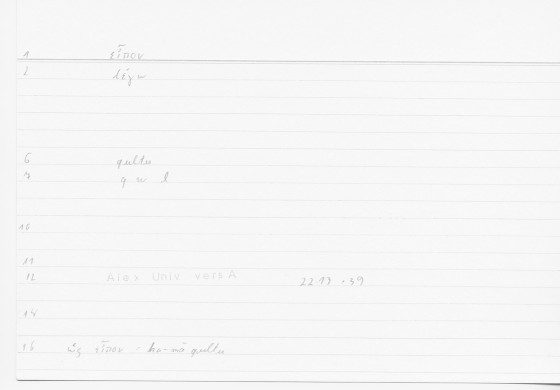 1 εἶπον
2 λέγω
6 qultu
7 q w l
10
11
12 Alex Univ versA 2219.39
14
15 ὡς εἶπον - ka-mā qultu